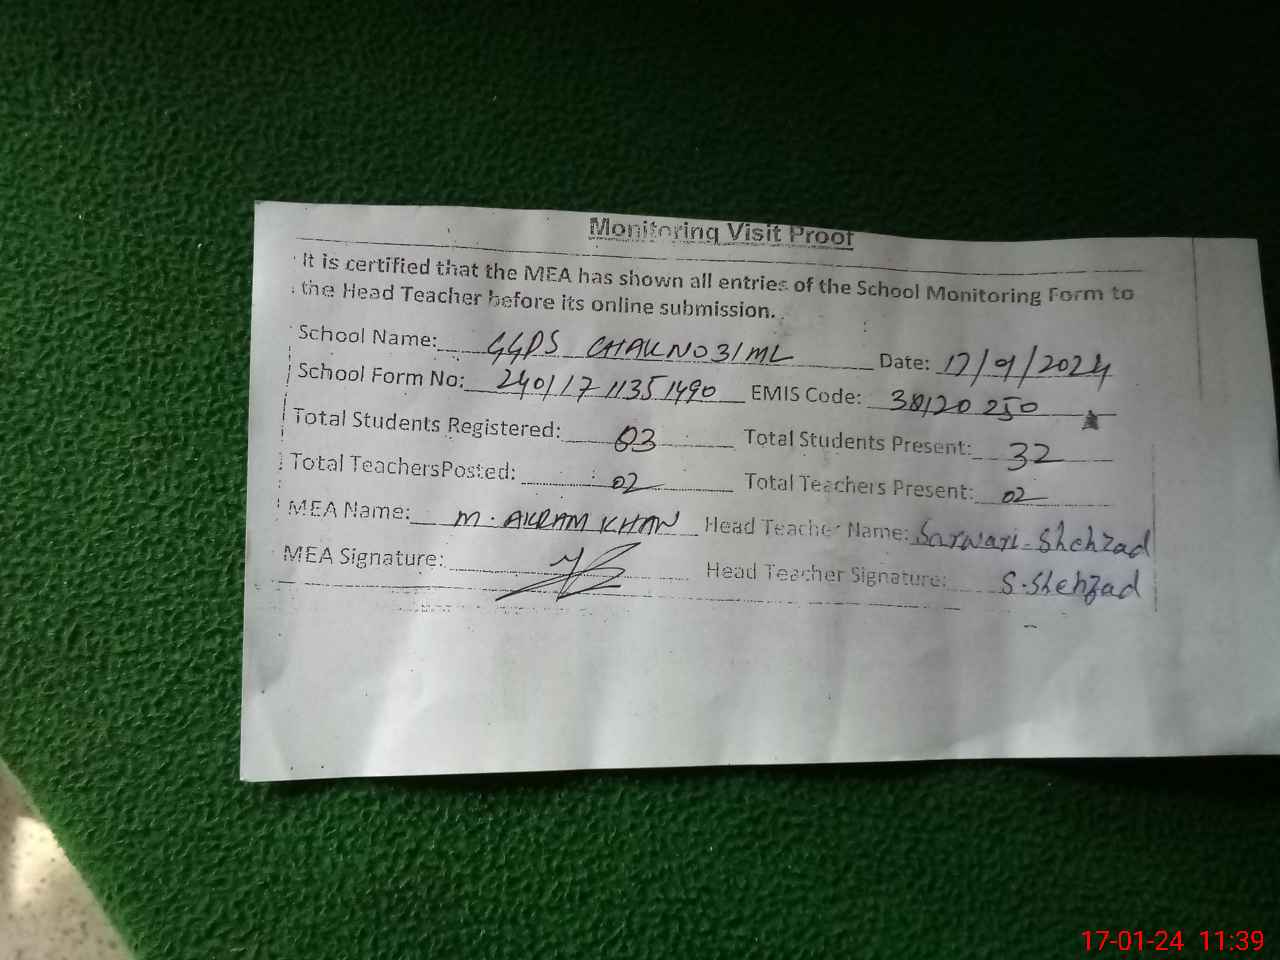 Monitoring Visit Proof
It is certified that the MEA has shown all entries of the School Monitoring Form to
the Head Teacher before its online submission.
School Name: GGPS CHAK NO 31 ML Date: 17/01/2024
School Form No: 24011711351490 EMIS Code: 38120250
Total Students Registered: 03 Total Students Present: 32
Total TeachersPosted: 02 Total Teachers Present: 02
MEA Name: M. AKRAM KHAN Head Teacher Name: Sarwari-Shehzad
MEA Signature: Head Teacher Signature: S.Shehzad
17-01-24 11:39